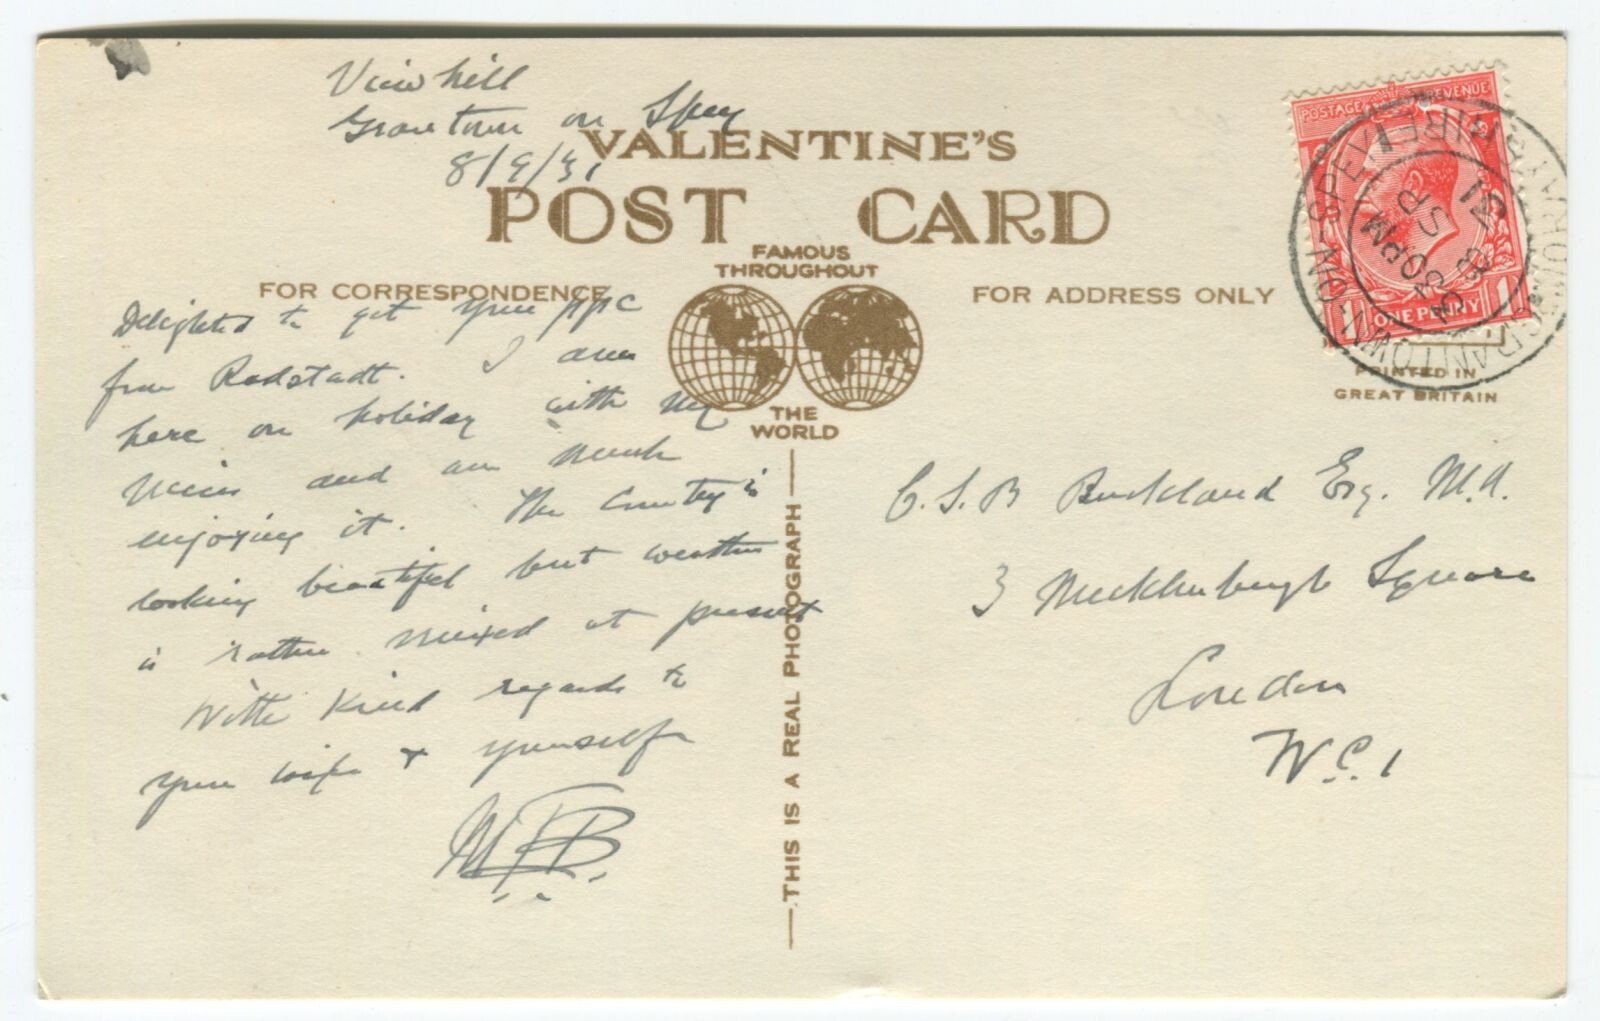 View hill
Grantown on Spey
8/9/31
VALENTINE'S
POST CARD
FAMOUS
THROUGHOUT
THE
WORLD
FOR CORRESPONDENCE
FOR ADDRESS ONLY
Delighted to get your ppc
from Radstadt. I am
here on holiday with my
niece and am much
enjoying it. The Country is
looking beautiful but weather
is rather mixed at present
With kind regards to
your wife & yourself
M.F.B.
THIS IS A REAL PHOTOGRAPH
POSTAGE REVENUE
ONE PENNY
GRANTOWN-ON-SPEY
4 30 PM
8 SP
31
PRINTED IN
GREAT BRITAIN
C.S.B Buckland Esq. M.A.
3 Mecklenburgh Square
London
W.C.1